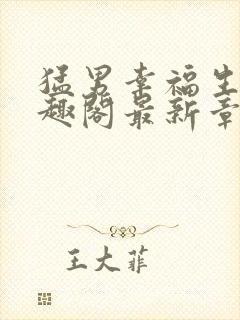 猛男幸福生
趣阁最新章
王大菲